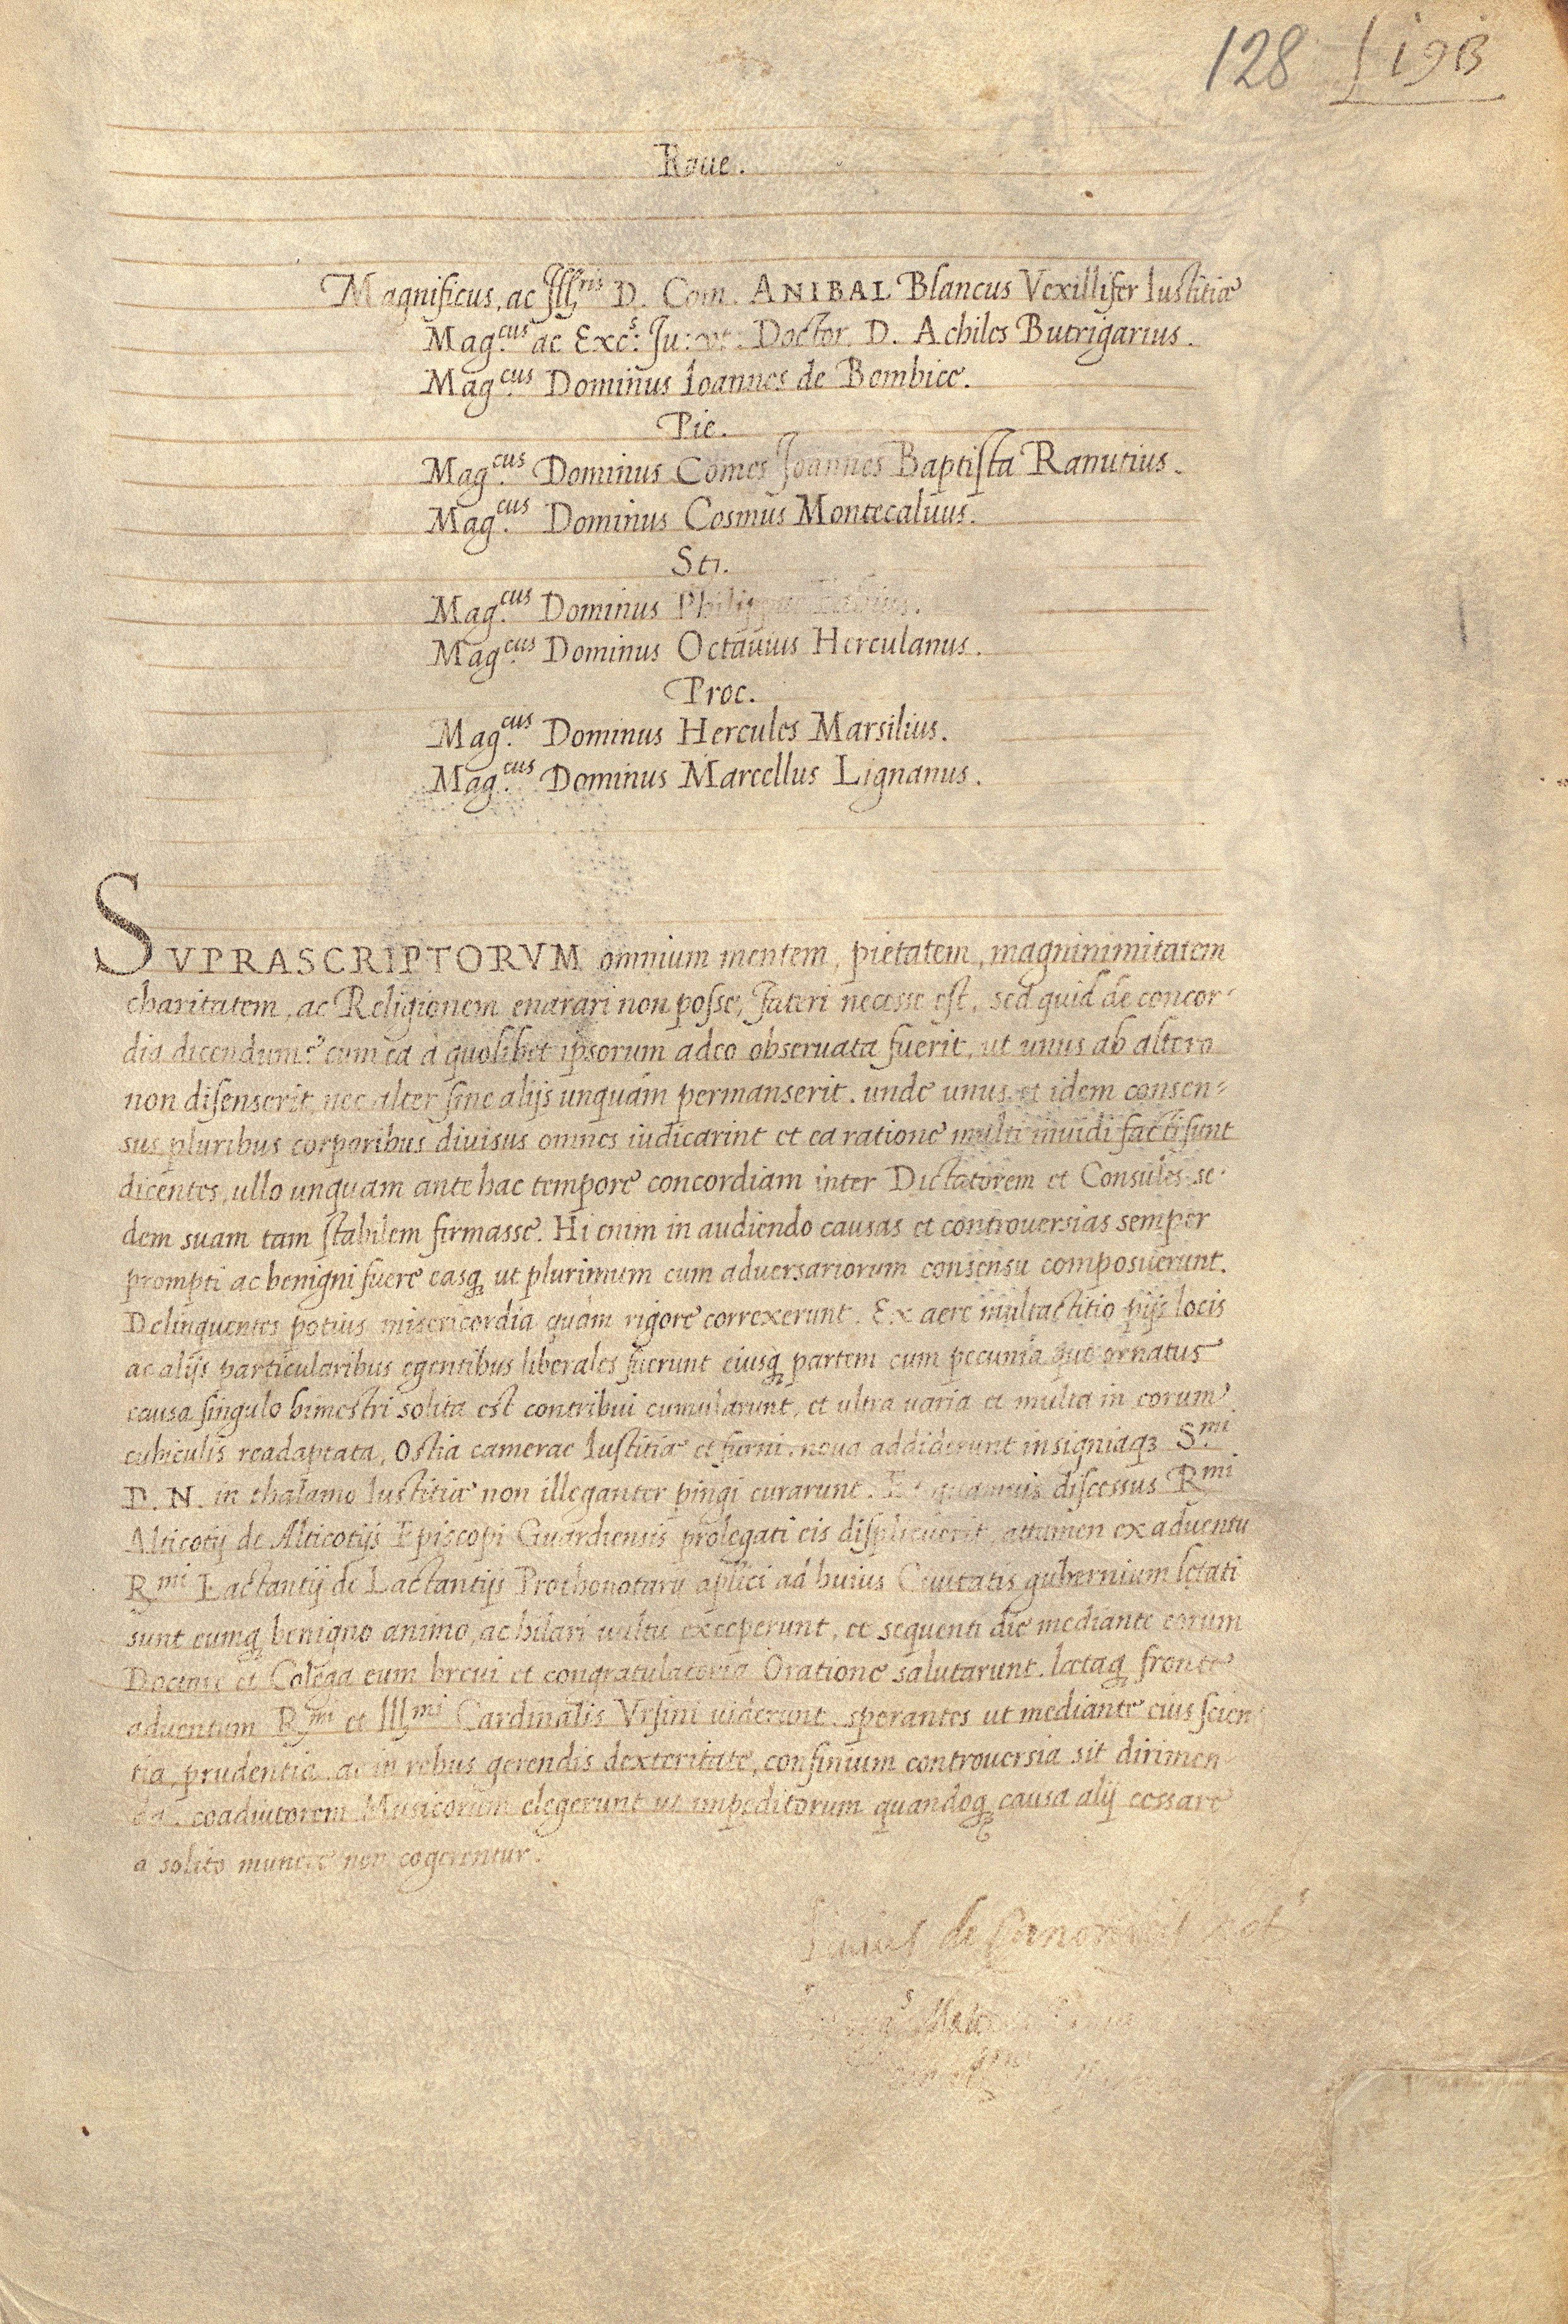 128 19B
Raue.
Magnificus, ac Jll.ris D. Com. ANIBAL Blancus Vexillifer Iustitiæ
Mag.cus ac Exc.s: Ju: Doctor. D. Achiles Butrigarius.
Mag.cus Dominus Ioannes de Bombice.
Pie.
Mag.cus Dominus Comes Joannes Baptista Ranutius.
Mag.cus Dominus Cosmus Montecaluus.
Sti.
Mag.cus Dominus Philippus
Mag.cus Dominus Octauius Herculanus.
Proc.
Mag.cus Dominus Hercules Marsilius.
Mag.cus Dominus Marcellus Lignanus.
SVPRASCRIPTORVM omnium mentem, pietatem, magninimitatem
charitatem, ac Religionem enarari non posse, fateri necesse est, sed quid de concor-
dia dicendum? cum ea à quolibet ipsorum adeo obseruata fuerit, ut unus ab altero
non disenserit, nec alter sine alijs unquam permanserit. unde unus et idem consen-
sus pluribus corporibus diuisus omnes iudicarint et ea ratione multi inuidi facti sunt
dicentes, ullo unquam ante hac tempore concordiam inter Dictatorem et Consules se-
dem suam tam stabilem firmasse. Hi enim in audiendo causas et controuersias semper
prompti ac benigni fuere easq ut plurimum cum aduersariorum consensu composuerunt.
Delinquentes potius misericordia quàm rigore correxerunt. Ex aere multactitio pijs locis
ac alijs particularibus egentibus liberales fuerunt eiusq partem cum pecunia que ornatus
causa singulo bimestri solita est contribui cumularunt, et ultra uaria et multa in eorum
cubiculis readaptata, Ostia camerae Iustitiæ et furni noua addiderunt insigniaq3 S.mi
D. N. in thalamo Iustitiæ non illeganter pingi curarunt. Et quamuis discessus R.mi
Alticotij de Alticotijs Episcopi Guardiensis prolegati eis displicuerit, attamen ex aduentu
R.mi Lactantij de Lactantijs Prothonotarij aplici ad huius Ciuitatis gubernium letati
sunt eumq benigno animo, ac hilari uultu exceperunt, et sequenti die mediante eorum
Doctore et Colega eum breui et congratulatoria Oratione salutarunt. lætaq fronte
aduentum R.mi et Ill.mi Cardinalis Vrsini uiderunt. sperantes ut mediante eius scien-
tia, prudentia, ac in rebus gerendis dexteritate, confinium controuersia sit dirimen-
da. coadiutorem Musicorum elegerunt ut impeditorum quandoq causa alij cessare
a solito munere non cogerentur.
de Canonicis not.s